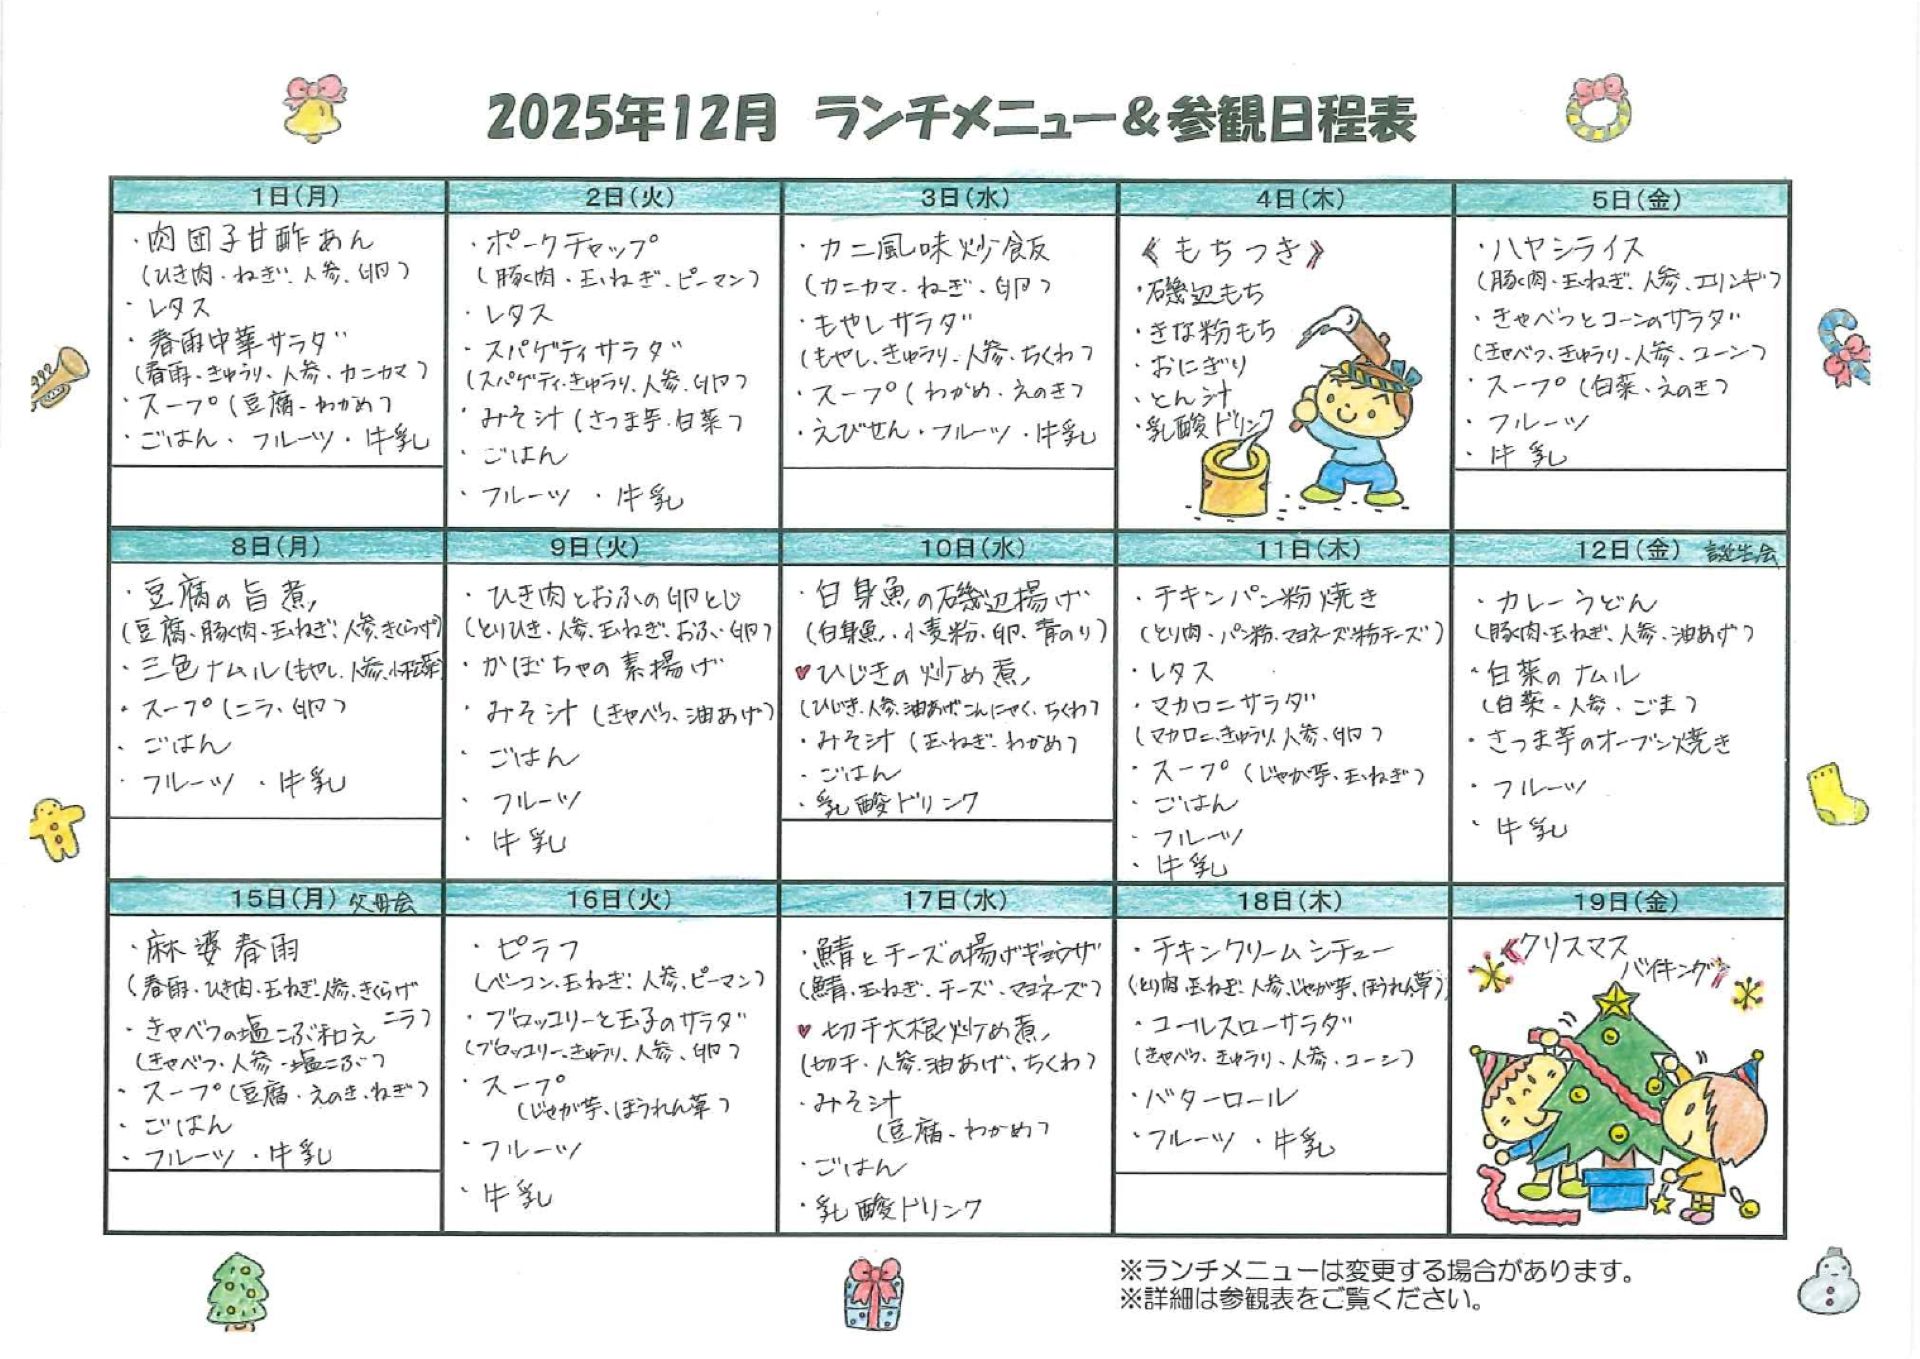 2025年12月 ランチメニュー&参観日程表
1日(月)
・肉団子甘酢あん
(ひき肉・ねぎ・人参・卵)
・レタス
・春雨中華サラダ
(春雨・きゅうり・人参・カニカマ)
・スープ(豆腐・わかめ)
・ごはん・フルーツ・牛乳
2日(火)
・ポークチャップ
(豚肉・玉ねぎ・ピーマン)
・レタス
・スパゲティサラダ
(スパゲティ・きゅうり・人参・卵)
・みそ汁(さつま芋・白菜)
・ごはん
・フルーツ・牛乳
3日(水)
・カニ風味炒飯
(カニカマ・ねぎ・卵)
・もやしサラダ
(もやし・きゅうり・人参・ちくわ)
・スープ(わかめ・えのき)
・えびせん・フルーツ・牛乳
4日(木)
《もちつき》
・磯辺もち
・きな粉もち
・おにぎり
・とん汁
・乳酸ドリンク
5日(金)
・ハヤシライス
(豚肉・玉ねぎ・人参・エリンギ)
・きゃべつとコーンのサラダ
(きゃべつ・きゅうり・人参・コーン)
・スープ(白菜・えのき)
・フルーツ
・牛乳
8日(月)
・豆腐の旨煮
(豆腐・豚肉・玉ねぎ・人参・きくらげ)
・三色ナムル(もやし・人参・小松菜)
・スープ(ニラ・卵)
・ごはん
・フルーツ・牛乳
9日(火)
・ひき肉とおふの卵とじ
(とりひき・人参・玉ねぎ・おふ・卵)
・かぼちゃの素揚げ
・みそ汁(きゃべつ・油あげ)
・ごはん
・フルーツ
・牛乳
10日(水)
・白身魚の磯辺揚げ
(白身魚・小麦粉・卵・青のり)
♥ひじきの炒め煮
(ひじき・人参・油あげ・こんにゃく・ちくわ)
・みそ汁(玉ねぎ・わかめ)
・ごはん
・乳酸ドリンク
11日(木)
・チキンパン粉焼き
(とり肉・パン粉・マヨネーズ・粉チーズ)
・レタス
・マカロニサラダ
(マカロニ・きゅうり・人参・卵)
・スープ(じゃが芋・玉ねぎ)
・ごはん
・フルーツ
・牛乳
12日(金) 誕生会
・カレーうどん
(豚肉・玉ねぎ・人参・油あげ)
・白菜のナムル
(白菜・人参・ごま)
・さつま芋のオーブン焼き
・フルーツ
・牛乳
15日(月) 父母会
・麻婆春雨
(春雨・ひき肉・玉ねぎ・人参・きくらげ
ニラ)
・きゃべつの塩こぶ和え
(きゃべつ・人参・塩こぶ)
・スープ(豆腐・えのき・ねぎ)
・ごはん
・フルーツ・牛乳
16日(火)
・ピラフ
(ベーコン・玉ねぎ・人参・ピーマン)
・ブロッコリーと玉子のサラダ
(ブロッコリー・きゅうり・人参・卵)
・スープ
(じゃが芋・ほうれん草)
・フルーツ
・牛乳
17日(水)
・鯖とチーズの揚げギョウザ
(鯖・玉ねぎ・チーズ・マヨネーズ)
♥切干大根炒め煮
(切干・人参・油あげ・ちくわ)
・みそ汁
(豆腐・わかめ)
・ごはん
・乳酸ドリンク
18日(木)
・チキンクリームシチュー
(とり肉・玉ねぎ・人参・じゃが芋・ほうれん草)
・コールスローサラダ
(きゃべつ・きゅうり・人参・コーン)
・バターロール
・フルーツ・牛乳
19日(金)
《クリスマス
バイキング》
※ランチメニューは変更する場合があります。
※詳細は参観表をご覧ください。